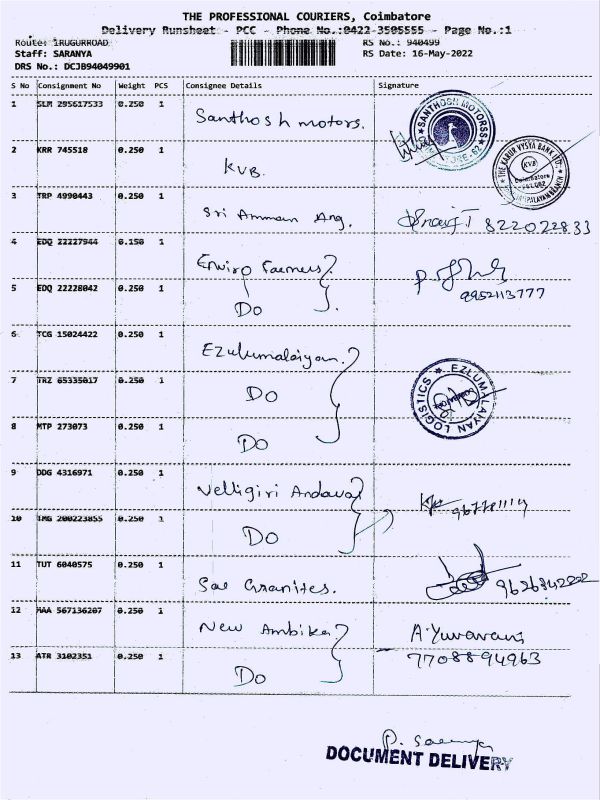 THE PROFESSIONAL COURIERS, Coimbatore
Delivery Runsheet - PCC - Phone No.:0422-3505555 - Page No.:1
Route: IRUGURROAD RS No.: 940499
Staff: SARANYA RS Date: 16-May-2022
DRS No.: DCJB94049901
S No Consignment No Weight PCS Consignee Details Signature
1 SLM 295617533 0.250 1 Santhosh motors. SANTHOSH MOTORSS
2 KRR 745518 0.250 1 KVB. THE KARUR VYSYA BANK LTD. KVB Coimbatore
3 TRP 4990443 0.250 1 Sri Amman Ang. 822022833
4 EDQ 22227944 0.150 1 Enviro Farmers
5 EDQ 22228042 0.250 1 Do 9952113777
6 TCG 15024422 0.250 1 Ezulumalaiyan.
7 TRZ 65335017 0.250 1 Do EZLUMALAIYAN LOGISTICS
8 MTP 273073 0.250 1 Do
9 DDG 4316971 0.250 1 Velligiri Andavar
10 TMG 200223855 0.250 1 Do
11 TUT 6040575 0.250 1 Sai Granites.
12 MAA 567136207 0.250 1 New Ambika
13 ATR 3102351 0.250 1 Do 7708894963
DOCUMENT DELIVERY